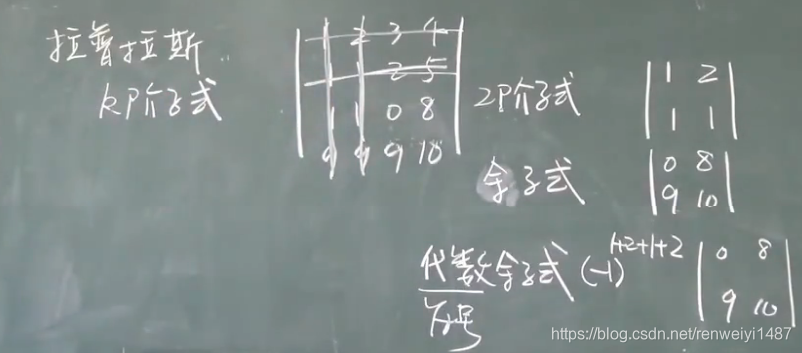 拉普拉斯
k阶子式
1 2 3 4
1 1 2 5
1 1 0 8
9 9 9 10
2阶子式
1 2
1 1
余子式
0 8
9 10
代数余子式 (-1)^{1+2+1+2}
0 8
9 10
符号
https://blog.csdn.net/renweiyi1487